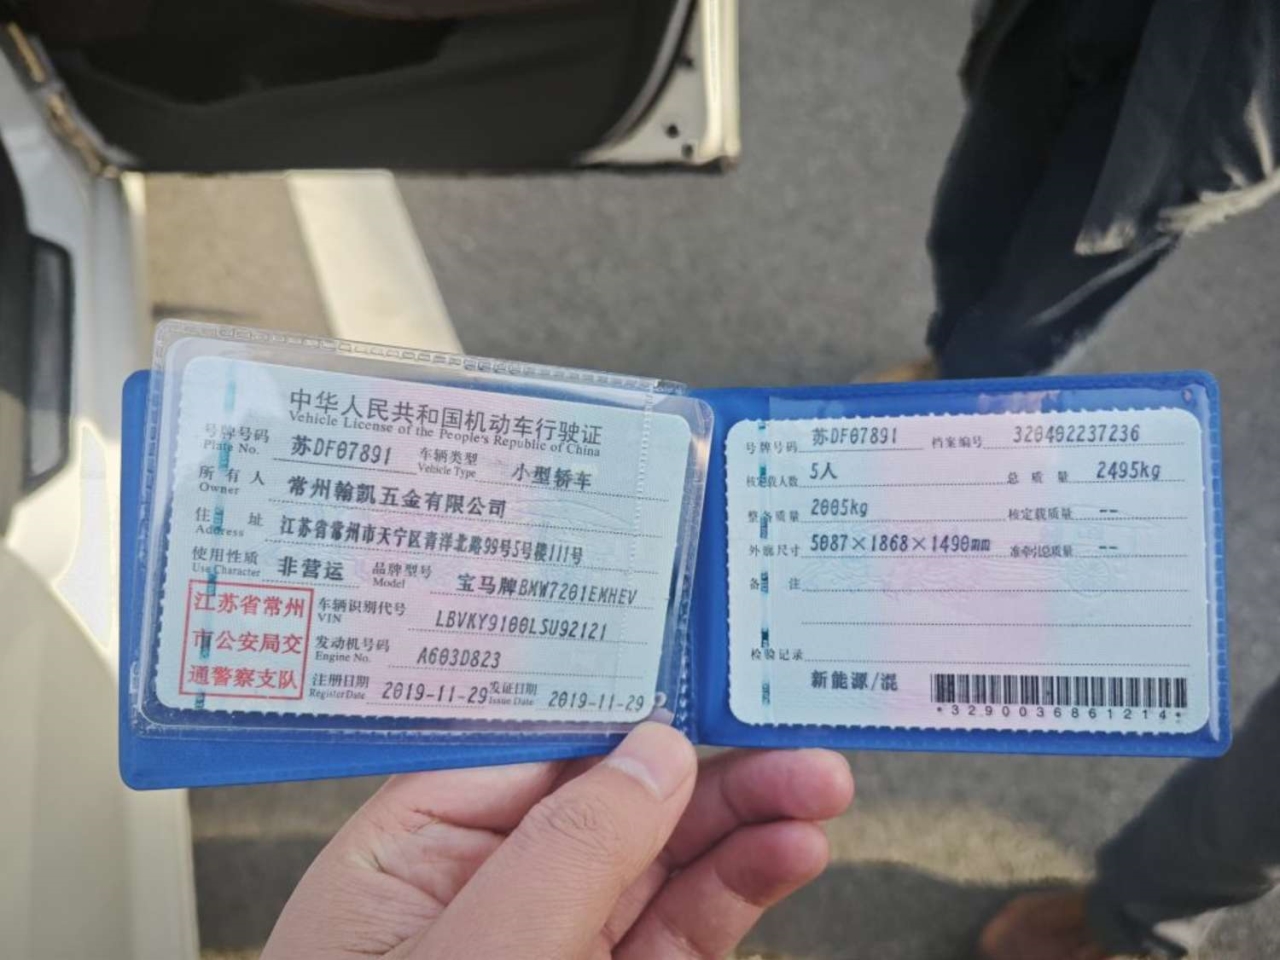 中华人民共和国机动车行驶证
Vehicle License of the People's Republic of China
号牌号码 苏DF07891 车辆类型 小型轿车
Plate No. Vehicle Type
所有人 常州翰凯五金有限公司
Owner
住址 江苏省常州市天宁区青洋北路99号5号楼111号
Address
使用性质 非营运 品牌型号 宝马牌BMW7201EMHEV
Use Character Model
江苏省常州
市公安局交
通警察支队
车辆识别代号 LBVKY9100LSU92121
VIN
发动机号码 A603D823
Engine No.
注册日期 2019-11-29 发证日期 2019-11-29
Register Date Issue Date
号牌号码 苏DF07891 档案编号 320402237236
核定载人数 5人 总质量 2495kg
整备质量 2005kg 核定载质量 --
外廓尺寸 5087×1868×1490mm 准牵引总质量 --
备注
检验记录
新能源/混
*3290036861214*